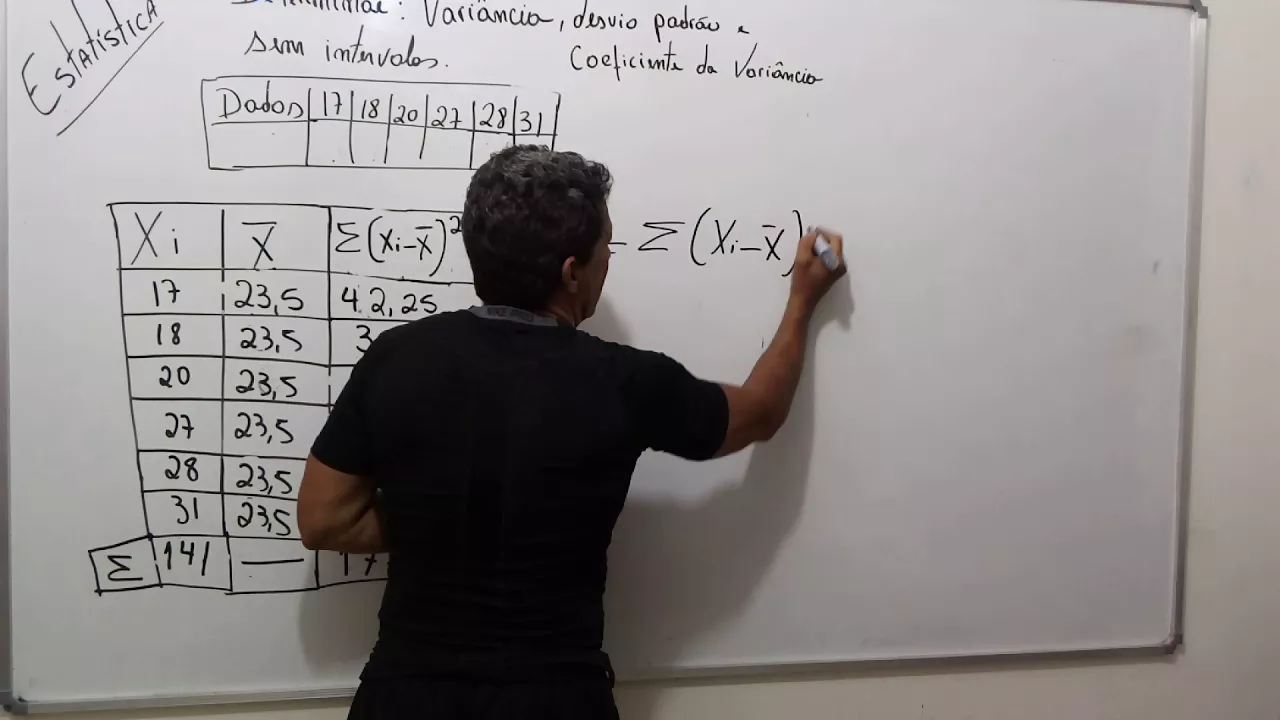 ESTATÍSTICA
: Variância, desvio padrão e
sem intervalos.
Coeficiente da Variância
Dados 17 18 20 27 28 31
Xi X̄ Σ(Xi-X̄)²
Σ(Xi-X̄)
17 23,5 42,25
18 23,5 3
20 23,5
27 23,5
28 23,5
31 23,5
Σ 141 — 17